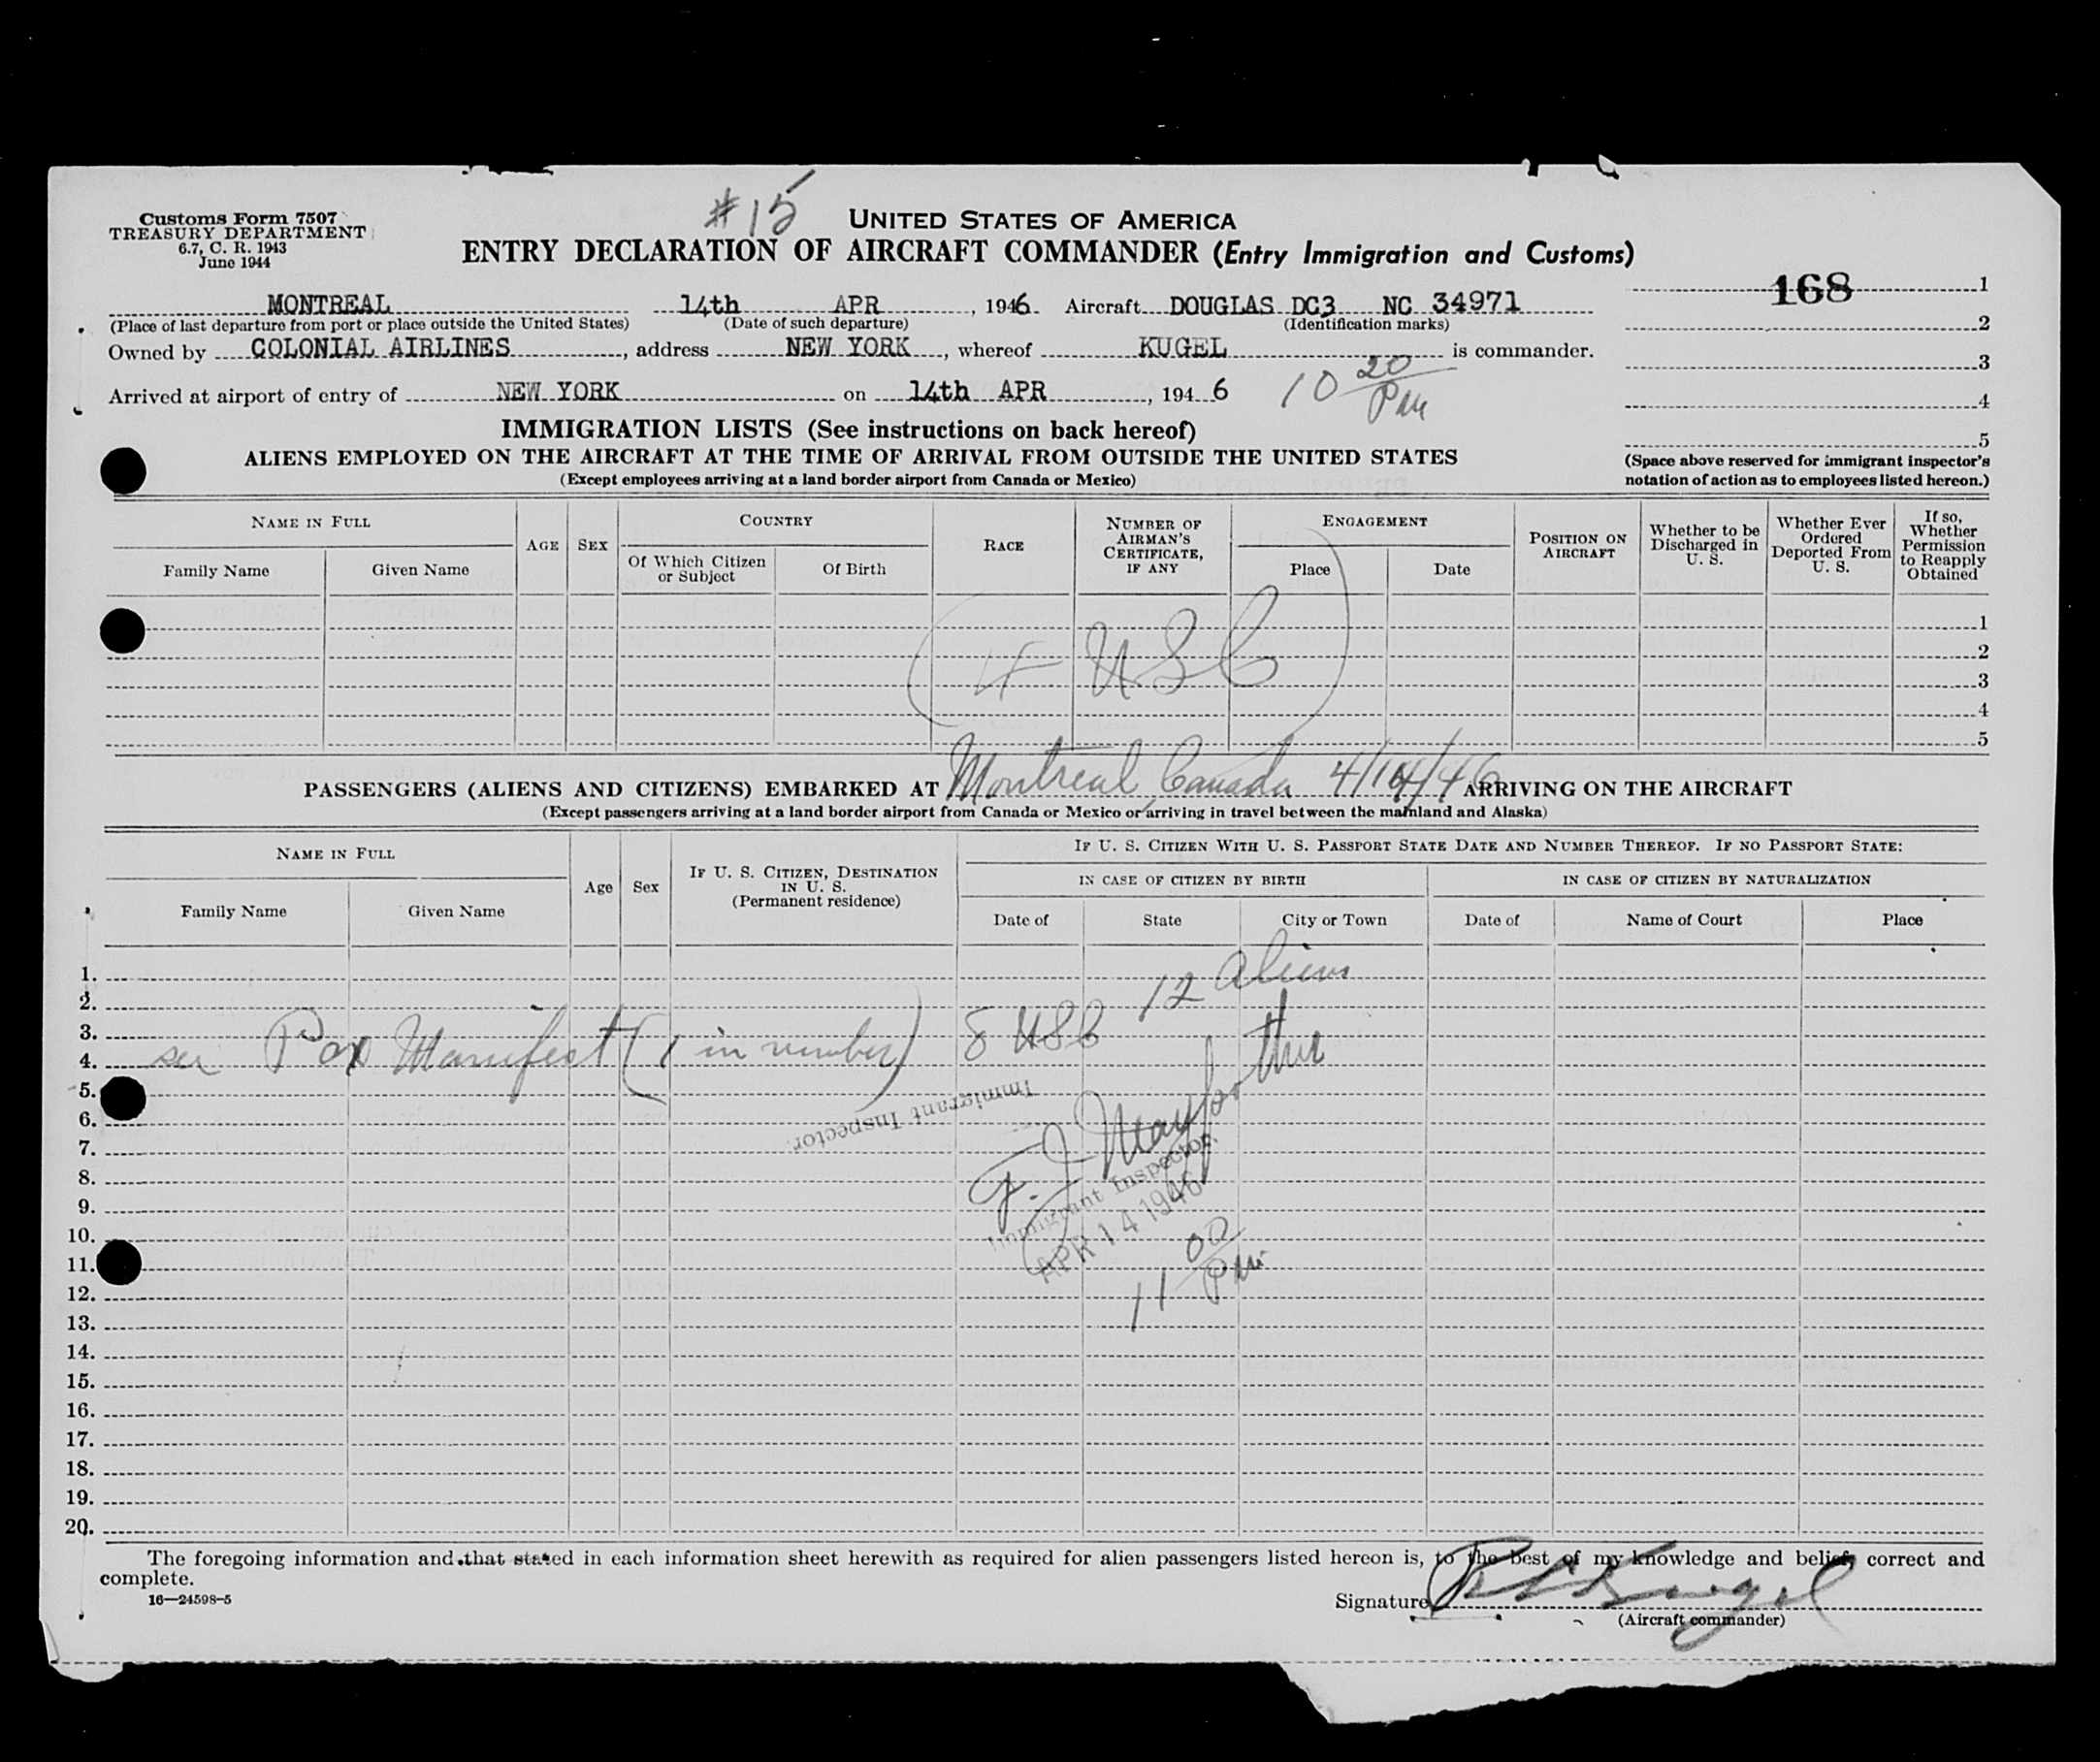 #15
Customs Form 7507
TREASURY DEPARTMENT
6.7, C. R. 1943
June 1944
UNITED STATES OF AMERICA
ENTRY DECLARATION OF AIRCRAFT COMMANDER (Entry Immigration and Customs)
168 1
2
3
4
5
(Space above reserved for immigrant inspector's
notation of action as to employees listed hereon.)
MONTREAL 14th APR , 1946 Aircraft DOUGLAS DC3 NC 34971
(Place of last departure from port or place outside the United States) (Date of such departure) (Identification marks)
Owned by COLONIAL AIRLINES , address NEW YORK , whereof KUGEL is commander.
Arrived at airport of entry of NEW YORK on 14th APR , 194 6 10 20 Pm
IMMIGRATION LISTS (See instructions on back hereof)
ALIENS EMPLOYED ON THE AIRCRAFT AT THE TIME OF ARRIVAL FROM OUTSIDE THE UNITED STATES
(Except employees arriving at a land border airport from Canada or Mexico)
NAME IN FULL
Family Name
Given Name
AGE
SEX
COUNTRY
Of Which Citizen
or Subject
Of Birth
RACE
NUMBER OF
AIRMAN'S
CERTIFICATE,
IF ANY
ENGAGEMENT
Place
Date
POSITION ON
AIRCRAFT
Whether to be
Discharged in
U. S.
Whether Ever
Ordered
Deported From
U. S.
If so,
Whether
Permission
to Reapply
Obtained
1
2
3
4
5
(4 USC)
PASSENGERS (ALIENS AND CITIZENS) EMBARKED AT Montreal Canada 4/14/46 ARRIVING ON THE AIRCRAFT
(Except passengers arriving at a land border airport from Canada or Mexico or arriving in travel between the mainland and Alaska)
NAME IN FULL
Family Name
Given Name
Age
Sex
IF U. S. CITIZEN, DESTINATION
IN U. S.
(Permanent residence)
IF U. S. CITIZEN WITH U. S. PASSPORT STATE DATE AND NUMBER THEREOF. IF NO PASSPORT STATE:
IN CASE OF CITIZEN BY BIRTH
Date of
State
City or Town
IN CASE OF CITIZEN BY NATURALIZATION
Date of
Name of Court
Place
1.
12 aliens
2.
3.
4.
see Pax Manifest (1 in number) 8 USC
5.
6.
Immigrant Inspector.
7.
8.
F. J.
Immigrant Inspector.
9.
APR 14 1946
10.
11.
11 00 Pm
12.
13.
14.
15.
16.
17.
18.
19.
20.
The foregoing information and that stated in each information sheet herewith as required for alien passengers listed hereon is, to the best of my knowledge and belief, correct and
complete.
16—24598-5
Signature R C Kugel
(Aircraft commander)